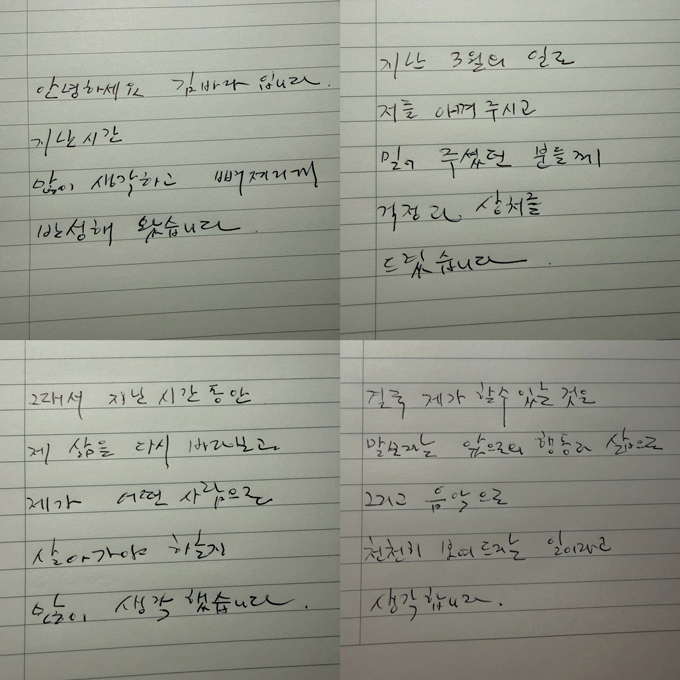 안녕하세요 김바라 입니다.
지난시간
많이 생각하고 뼈저리게
반성해 왔습니다.
지난 3월의 일로
저를 아껴주시고
믿어 주셨던 분들께
걱정과 상처를
드렸습니다.
그래서 지난 시간 동안
제 삶을 다시 바라보고
제가 어떤 사람으로
살아가야 하는지
많이 생각 했습니다.
결국 제가 할수 있는 것은
말보다는 앞으로의 행동과 삶으로
그리고 음악으로
천천히 보여드리는 일이라고
생각합니다.